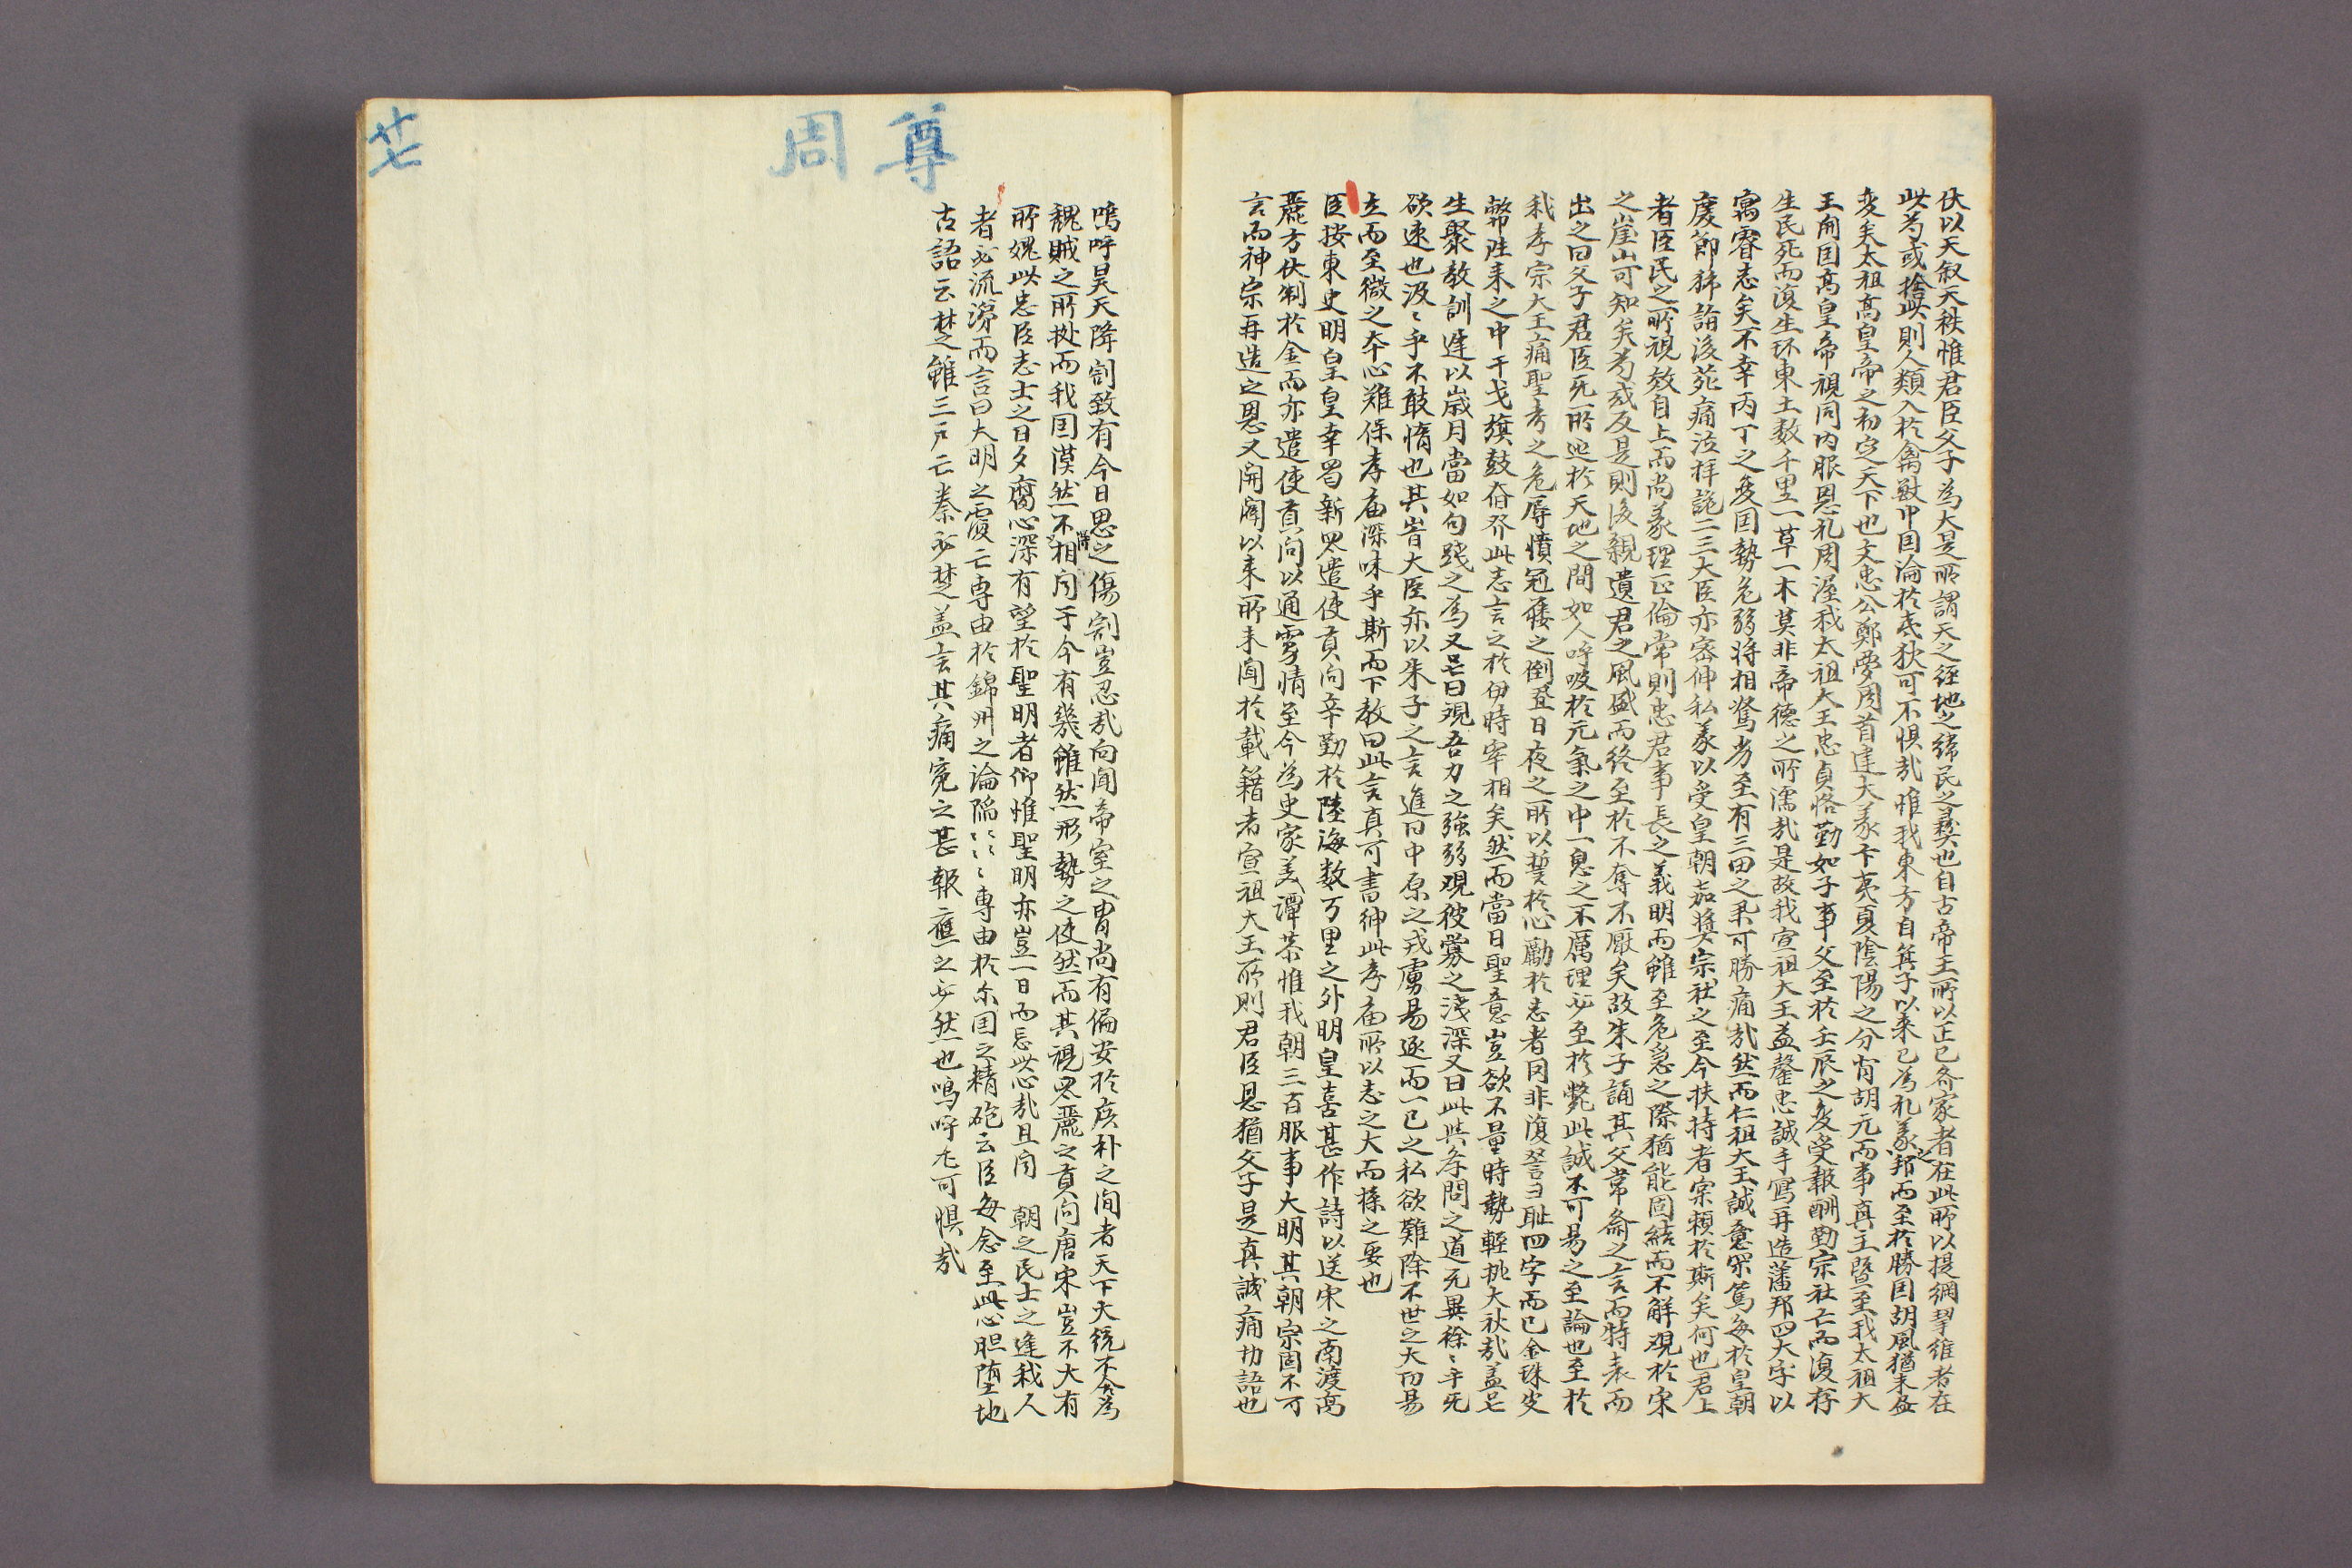 伏以天叙天秩惟君臣父子為大是所謂天之経地之緯民之彛也自古帝王所以正己齐家者在此所以提綱挈維者在
此苟或捨此則人類入於禽獣中国淪於夷狄可不惧哉惟我東方自箕子以来已為礼義之邦而至於勝国胡風猶未尽
変矣太祖高皇帝之初定天下也文忠公鄭夢周首建大義卞夷夏陰陽之分背胡元而事真主曁至我太祖大
王開国高皇帝視同内服恩礼周渥我太祖大王忠貞恪勤如子事父至於壬辰之変受報酬勤宗社亡而復存
生民死而復生环東土数千里一草一木莫非帝德之所濡哉是故我宣祖大王益罄忠誠手寫再造藩邦四大字以
寓睿志矣不幸丙丁之変国勢危弱将相駑劣至有三田之事可勝痛哉然而仁祖大王誠意深篤每於皇朝
慶節躬詣後苑痛泣拝詭二三大臣亦密伸私義以受皇朝嘉奨宗社之至今扶持者寔頼於斯矣何也君上
者臣民之所視效自上而尚義理正倫常則忠君事長之義明而雖至危急之際猶能固結而不解观於宋
之崖山可知矣苟或反是則後親遺君之風盛而終至於不奪不厭矣故朱子誦其父常侖之言而特表而
出之曰父子君臣无所逃於天地之間如人呼吸於元氣之中一息之不属理必至於斃此誠不可易之至論也至於
我孝宗大王痛聖考之危辱憤冠屨之倒置日夜之所以誓於心勵於志者罔非復讐雪耻四字而已金珠皮
幣陸来之中干戈旗鼓脊脊此志言之於伊時宰相矣然而當日聖意豈欲不量時勢輕挑大秋哉盖先
生聚教訓遅以歳月當如句踐之為又曰視吾力之強弱观彼釁之浅深又曰此与学問之道无異徐々乎无
欲速也汲々乎不敢惰也其旹大臣亦以朱子之言進曰中原之戎虜易逐而一己之私欲難除不世之大功易
立而至微之夲心難保孝庙深味乎斯而下教曰此言真可書紳此孝庙所以志之大而操之要也
臣按東史明皇皇幸蜀新罗遣使貢问辛勤於陸海数万里之外明皇喜甚作詩以送宋之南渡高
麗方伏制於金而亦遣使貢问以通虜情至今為史家美譚恭惟我朝三百服事大明其朝宗固不可
言而神宗再造之恩又開闢以来所未聞於載籍者宣祖大王所則君臣恩猶父子是真誠痛切語也
尊周
嗚呼昊天降割致有今日思之傷割豈忍哉向闻帝室之冑尚有偏安於広朴之间者天下大統不為
魏賊之所拠而我国漠然不得相闻于今有幾雖然形勢之使然而其視罗麗之貢问唐宋豈不大有
所媿此忠臣志士之日夕腐心深有望於聖明者仰惟聖明亦豈一日而忘此心哉且闻 朝之民士之逢我人
者必流涕而言曰大明之覆亡専由於錦州之淪陥々々々々専由於尓国之精砲云臣每念至此心胆堕地
古語云楚雖三戸亡秦必楚盖言其痛寃之甚報應之必然也嗚呼尤可惧哉
廿七